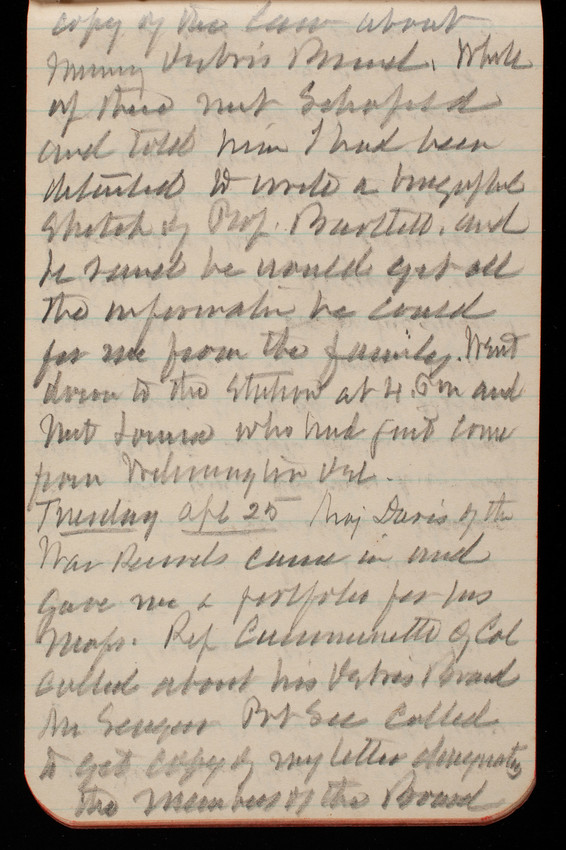 copy of the law about
mining Debris Board. While
up there met Schofield
and told him I had been
detailed to write a biographl
sketch of Prof. Bartlett. and
he said he would get all
the informatin he could
for me from the family. Went
down to the Station at 4. Pm and
met Louise who had just come
from Wilmington Del.
Tuesday Apl 25 Maj Davis of the
War Records came in and
gave me a portfolio for his
Maps. Rep Caminetti of Cal
called about his Debris Board
Mr Put Sec called
to get copy of my letter designating
the members of the Board